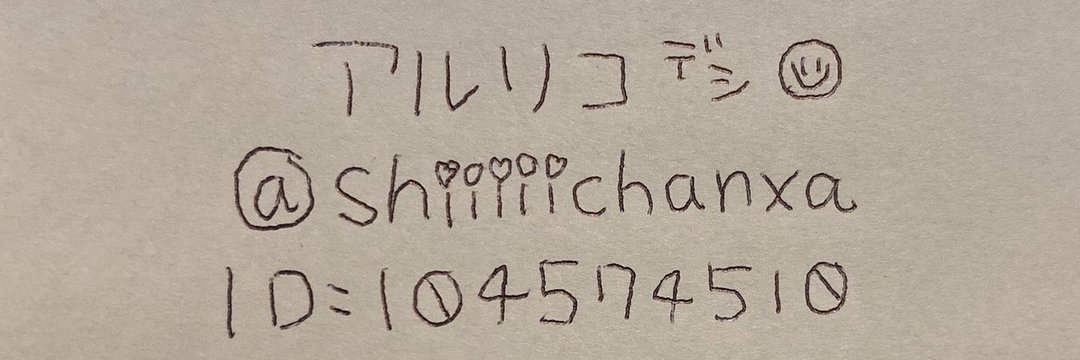 アルリコデシ
@shiiiiiichanxa
ID=104574510